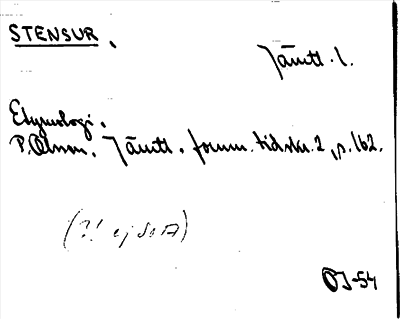 STENSUR.
Jämtl. l.
Etymologi.
P. Olsson. Jämtl. fornm. tidskr. 2, p. 162.
(?! ej
OJ-54